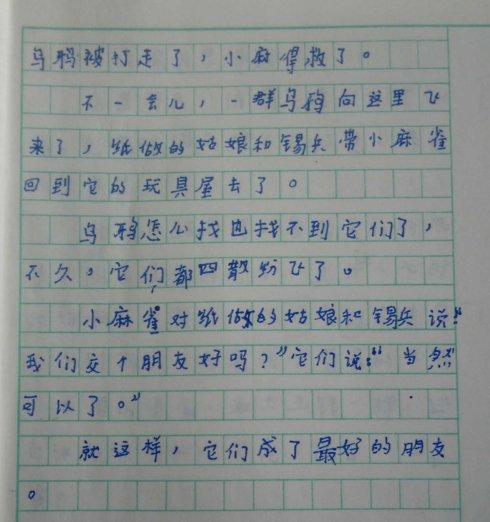 乌鸦被打走了，小麻得救了。
不一会儿，一群乌鸦向这里飞
来了，纸做的姑娘和锡兵带小麻雀
回到它的玩具屋去了。
乌鸦怎么找也找不到它们了，
不久。它们都四散纷飞了。
小麻雀对纸做的姑娘和锡兵说：“
我们交个朋友好吗？”它们说：“当然
可以了。”
就这样，它们成了最好的朋友
。